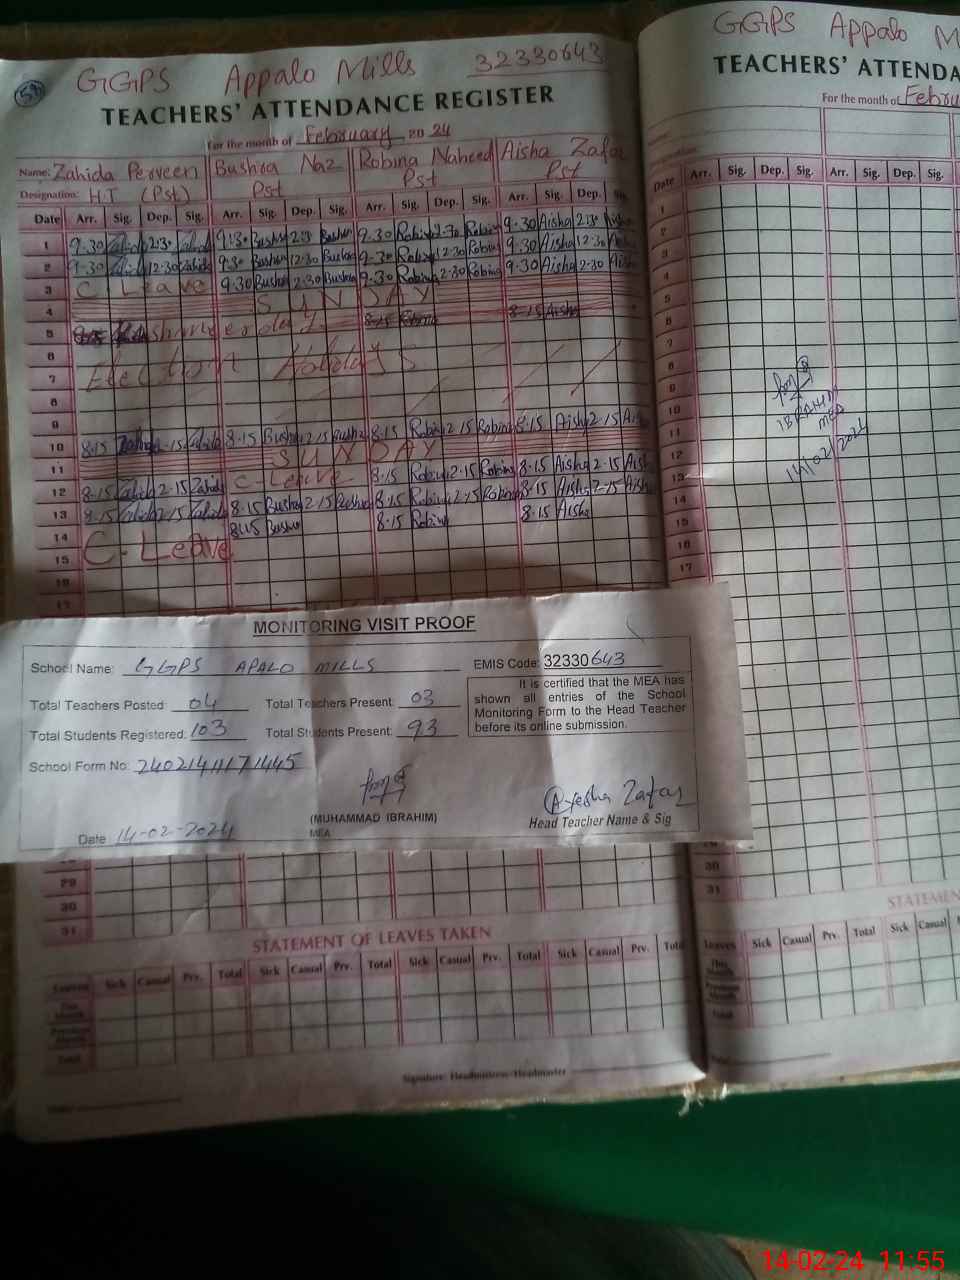 GGPS Appalo Mills 32330643
TEACHERS' ATTENDANCE REGISTER
For the month of February 2024
Name: Zahida Perveen Bushra Naz Robina Naheed Aisha Zafar
Designation: H.T (Pst) Pst Pst Pst
Date Arr. Sig. Dep. Sig. Arr. Sig. Dep. Sig. Arr. Sig. Dep. Sig. Arr. Sig. Dep.
1 9-30 Zahida 2:30 Zahida 9:30 Bushra 2:30 Bushra 9-30 Robina 2-30 Robina 9-30 Aisha 2:30 Aisha
2 9-30 Zahida 12-30 Zahida 9:30 Bushra 12-30 Bushra 9-30 Robina 12-30 Robina 9-30 Aisha 12-30 Aisha
3 C. Leave 9-30 Bushra 2-30 Bushra 9-30 Robina 2-30 Robina 9-30 Aisha 2-30 Aisha
4 SUNDAY
5 8-15 Robina 8-15 Aisha
6
7 Election Holidays
8
9
10 8-15 Zahida 2-15 Zahida 8-15 Bushra 2-15 Bushra 8-15 Robina 2-15 Robina 8-15 Aisha 2-15 Aisha
11 SUNDAY
12 8-15 Zahida 2-15 Zahida C-Leave 8-15 Robina 2-15 Robina 8-15 Aisha 2-15 Aisha
13 8-15 Zahida 2-15 Zahida 8-15 Bushra 2-15 Bushra 8-15 Robina 2-15 Robina 8-15 Aisha 2-15 Aisha
14 C-Leave 8:15 Bushra 8-15 Robina 8-15 Aisha
15
16
17
MONITORING VISIT PROOF
School Name: GGPS APALO MILLS EMIS Code: 32330643
Total Teachers Posted: 04 Total Teachers Present: 03
Total Students Registered: 103 Total Students Present: 93
It is certified that the MEA has
shown all entries of the School
Monitoring Form to the Head Teacher
before its online submission.
School Form No:
Ayesha Zafar
(MUHAMMAD IBRAHIM) Head Teacher Name & Sig
MEA
Date 14-02-2024
29
30
31
STATEMENT OF LEAVES TAKEN
Leaves Sick Casual Prv. Total Sick Casual Prv. Total Sick Casual Prv. Total Sick Casual Prv. Total
This Month
Previous Month
Total
Signature Headmistress/Headmaster
GGPS Appalo M
TEACHERS' ATTENDA
For the month of Febru
Date Arr. Sig. Dep. Sig. Arr. Sig. Dep. Sig.
1
2
3
4
5
6
7
8
9
10
11
12
13
14
15
16
17
IBRAHIM
MEA
14/02/2024
29
30
31
STATEMEN
Leaves Sick Casual Prv. Total Sick Casual
This Month
Previous Month
Total
14-02-24 11:55